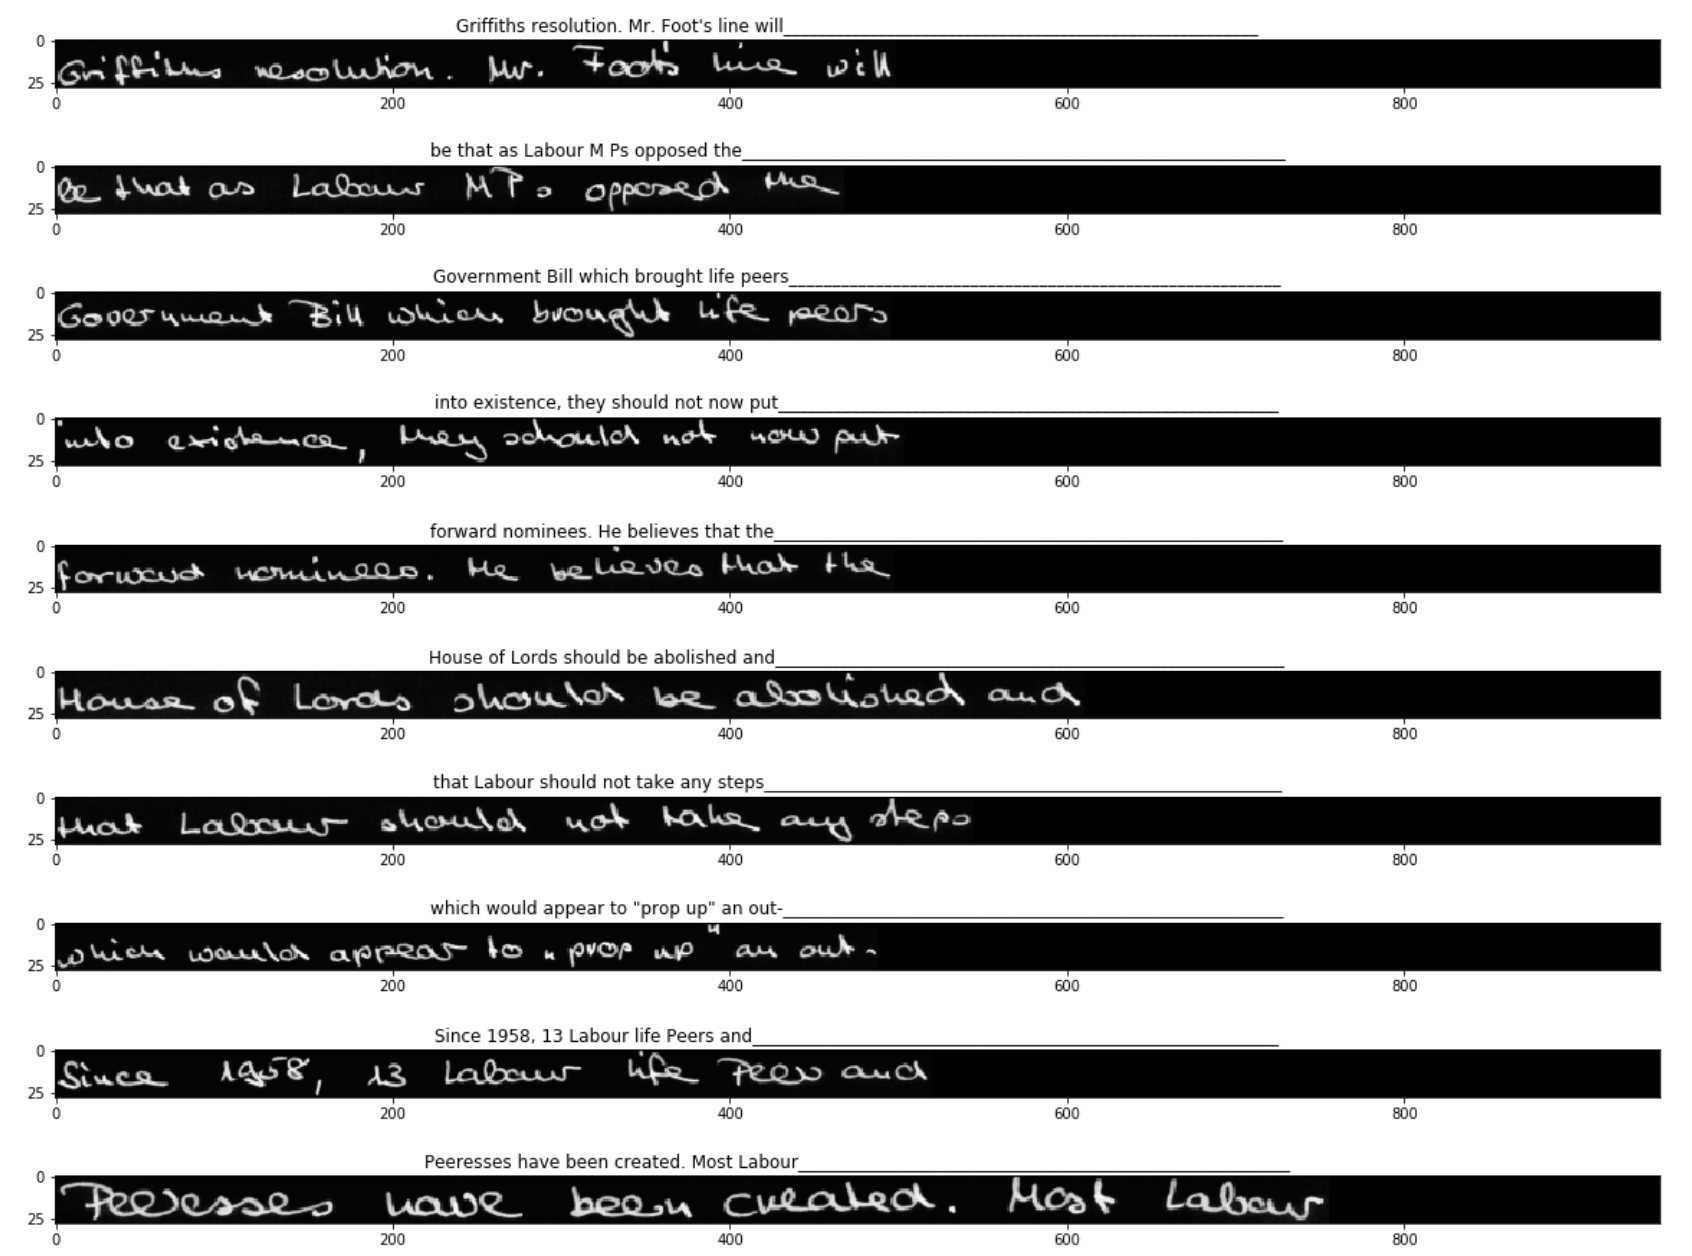 Griffiths resolution. Mr. Foot's line will____________________
0
Griffiths resolution. Mr. Foot's line will
25
0 200 400 600 800
be that as Labour M Ps opposed the____________________
0
be that as Labour M Ps opposed the
25
0 200 400 600 800
Government Bill which brought life peers____________________
0
Government Bill which brought life peers
25
0 200 400 600 800
into existence, they should not now put____________________
0
into existence, they schould not now put
25
0 200 400 600 800
forward nominees. He believes that the____________________
0
forward nominees. He believes that the
25
0 200 400 600 800
House of Lords should be abolished and____________________
0
House of Lords should be abolished and
25
0 200 400 600 800
that Labour should not take any steps____________________
0
that Labour should not take any steps
25
0 200 400 600 800
which would appear to "prop up" an out-____________________
0
which would appear to „prop up" an out-
25
0 200 400 600 800
Since 1958, 13 Labour life Peers and____________________
0
Since 1958, 13 Labour life Peers and
25
0 200 400 600 800
Peeresses have been created. Most Labour____________________
0
Peeresses have been created. Most Labour
25
0 200 400 600 800